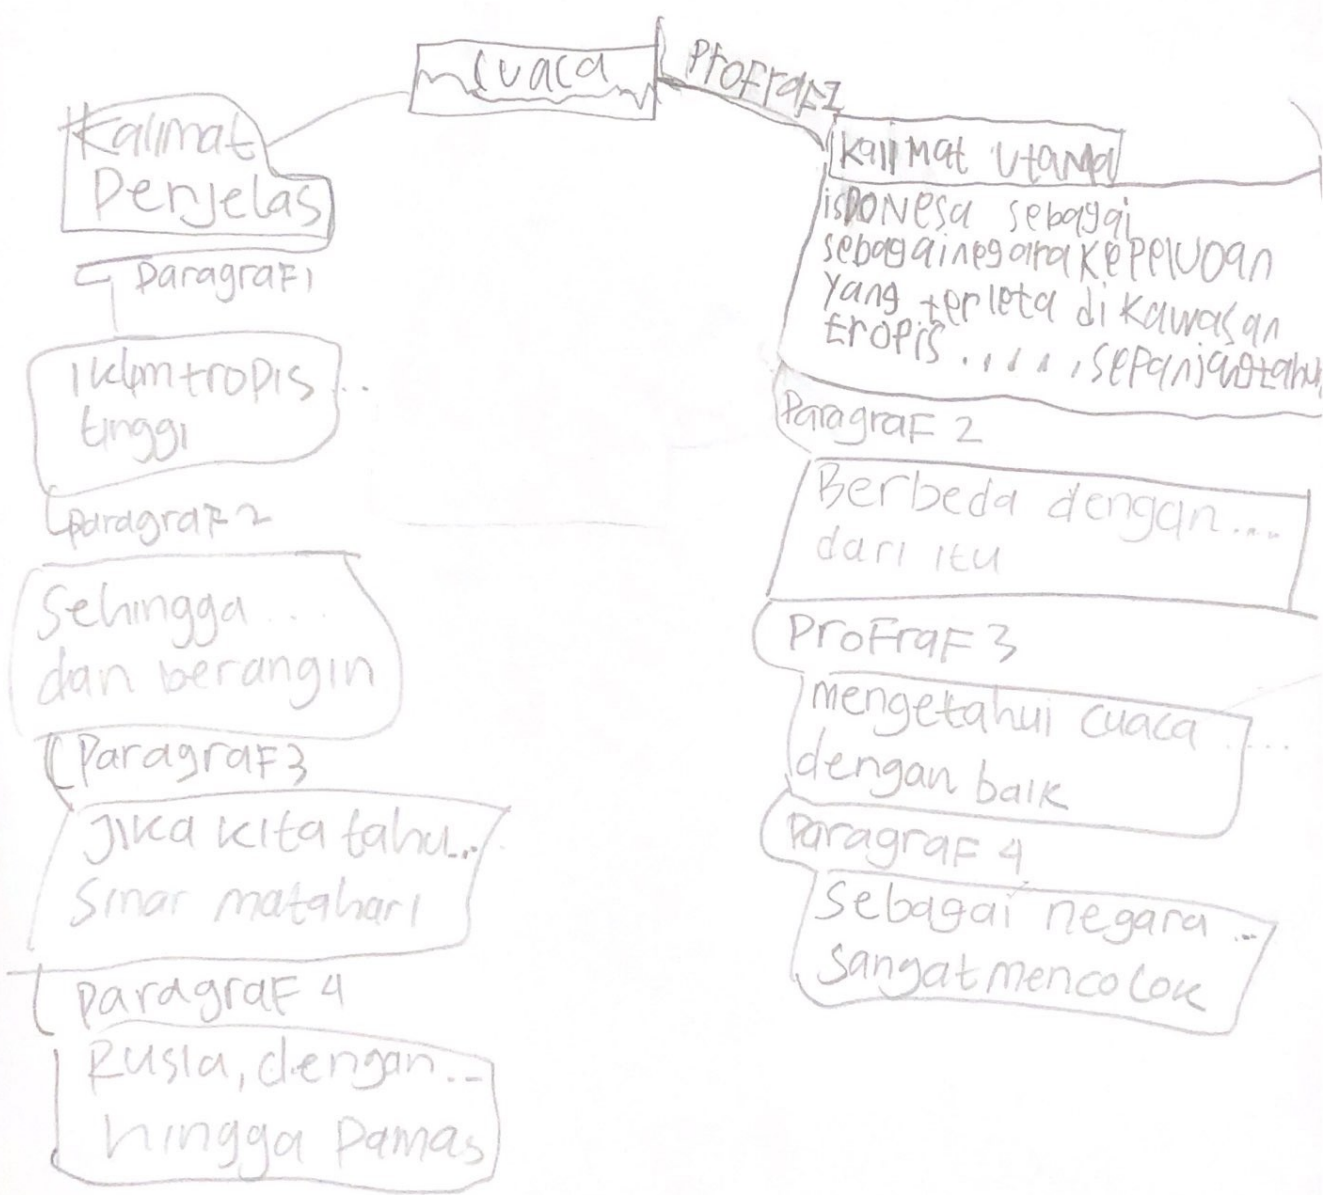 Cuaca
Kalimat
Penjelas
Paragraf 1
iklim tropis ...
tinggi
Paragraf 2
Sehingga ...
dan berangin
Paragraf 3
Jika kita tahu...
Sinar matahari
Paragraf 4
Rusia, dengan ...
hingga Pamas
ProFraF 1
Kalimat Utama
isDONesa sebagai
sebagai negara Kepeluoan
yang terleta di Kawasan
tropis ......sepanjang tahu
Paragraf 2
Berbeda dengan ....
dari itu
ProFraF 3
mengetahui cuaca ....
dengan baik
Paragraf 4
Sebagai negara ...
Sangat mencolok